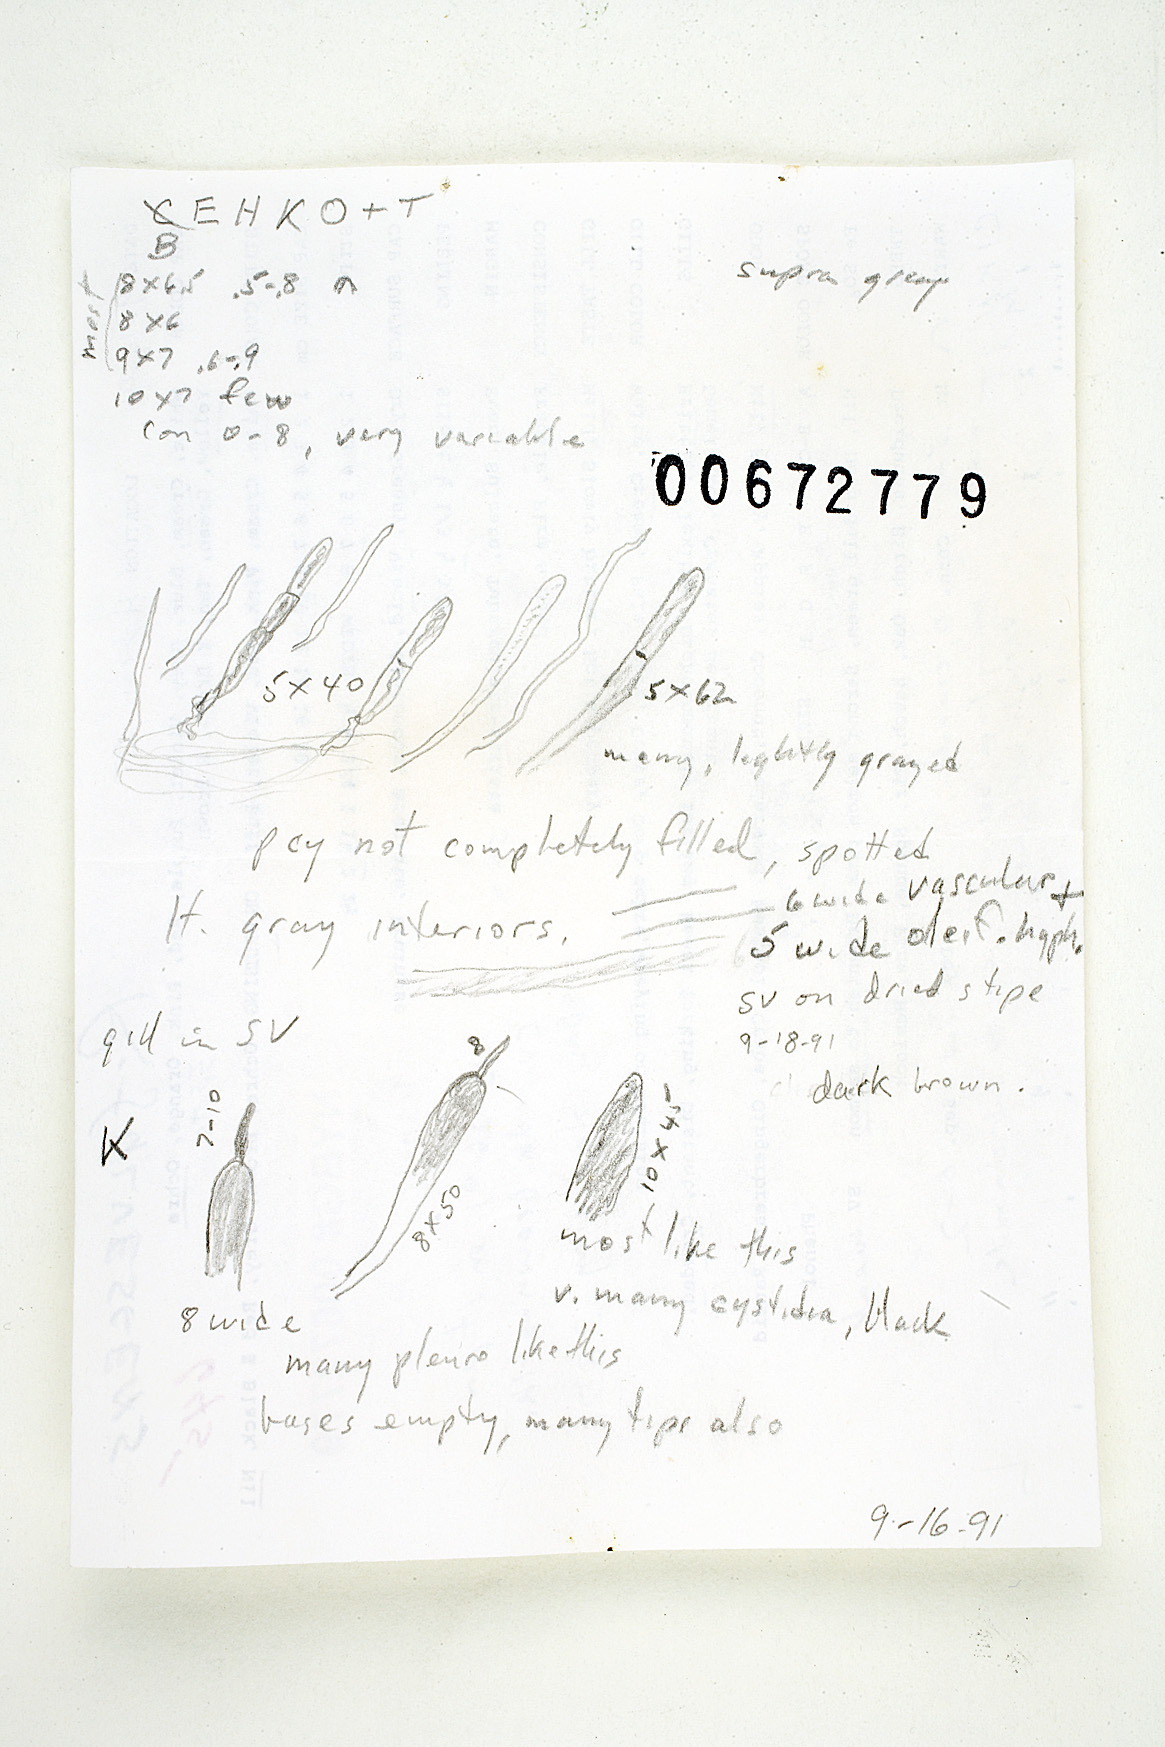 C E H K O + T
B
most
8 x 6.5 .5-.8 n
8 x 6
9 x 7 .6-.9
10 x 7 few
con 0-8, very variable
supra gray
00672779
5 x 40
5 x 62
many, lightly grayed
pcy not completely filled, spotted
lt. gray interiors.
6 wide vascular +
5 wide oleif. hyph.
SV on dried stipe
9-18-91
dark brown.
gill in SV
K
7-10
8
8 x 50
10 x 45
most like this
v. many cystidia, black
8 wide
many pleuro like this
bases empty, many tips also
9-16-91